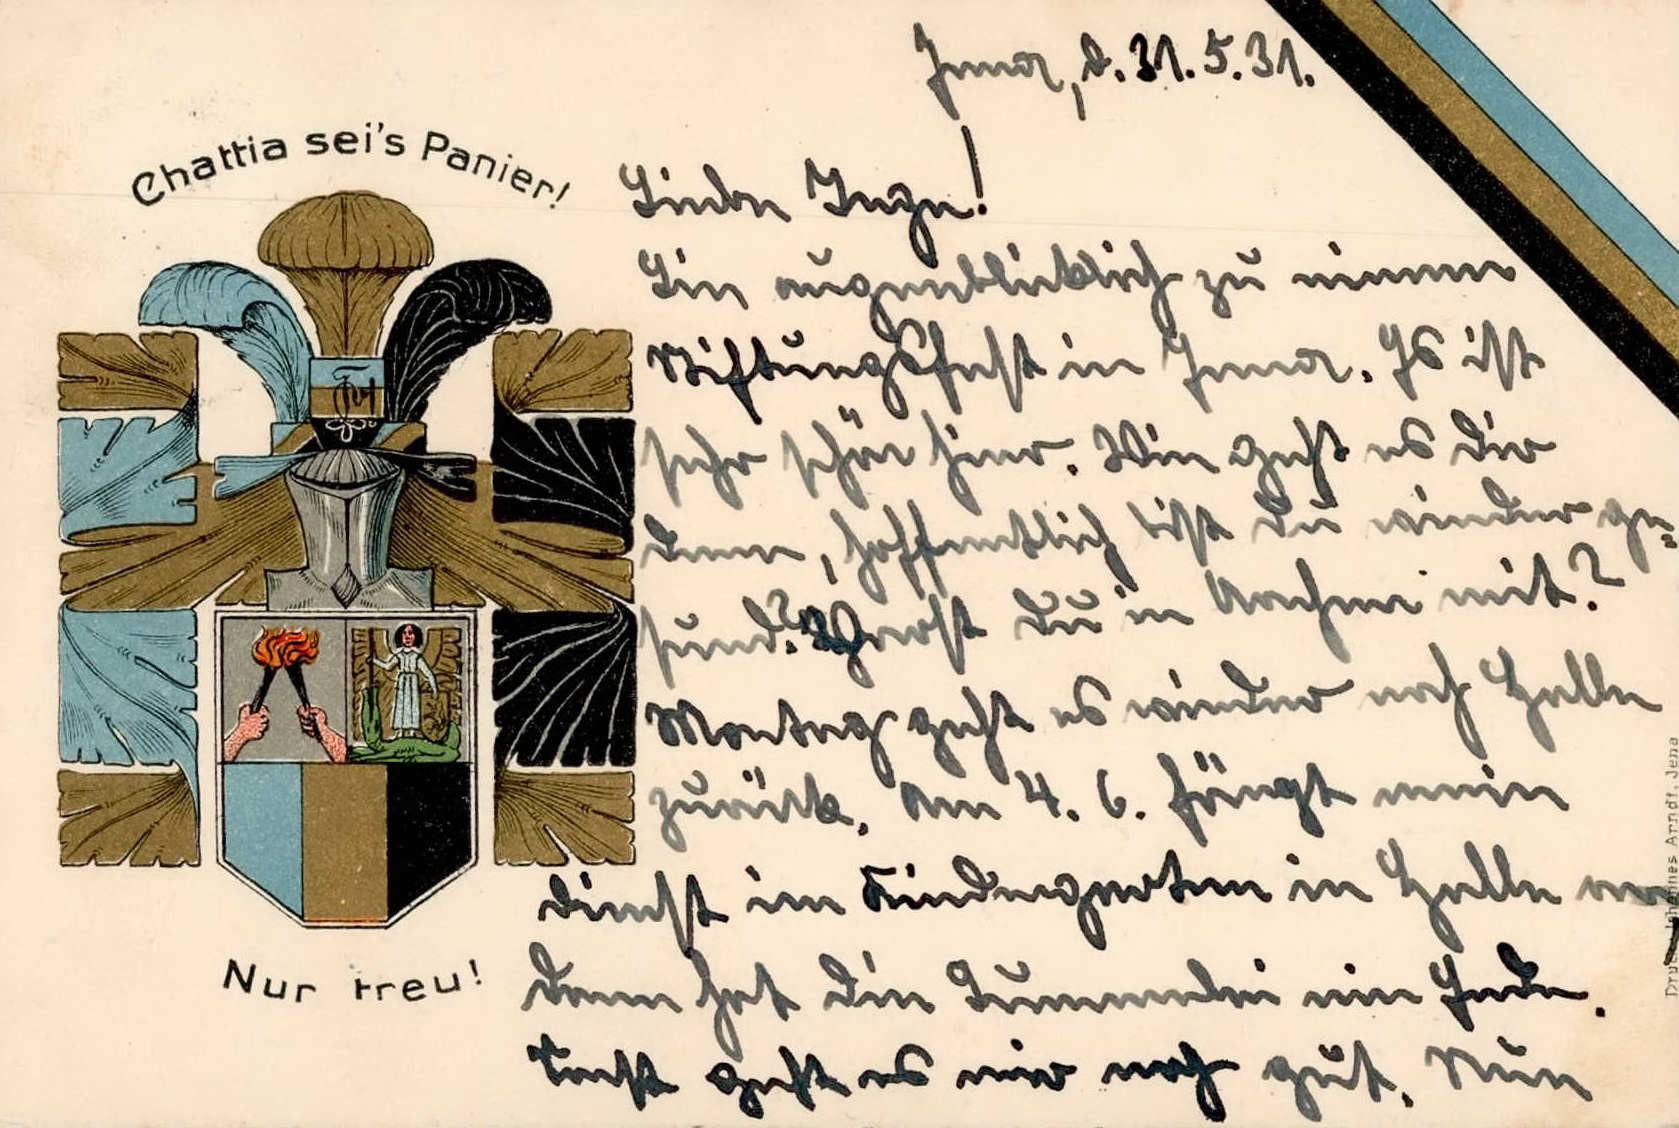 Jena, d. 31.5.31.
Chattia sei's Panier!
Liebe Inge!
Bin augenblicklich zu einem
Stiftungsfest in Jena. Es ist
sehr schön hier. Wie geht es dir
denn, hoffentlich bist du wieder ge-
sund? Warst du in Aachen mit?
Montag geht es wieder nach Halle
zurück. Am 4. 6. fängt mein
Dienst im Kindergarten in Halle an
dann hat die Bummelei ein Ende.
Sonst geht es mir noch gut. Nun
Nur treu!
Druck Johannes Arndt, Jena